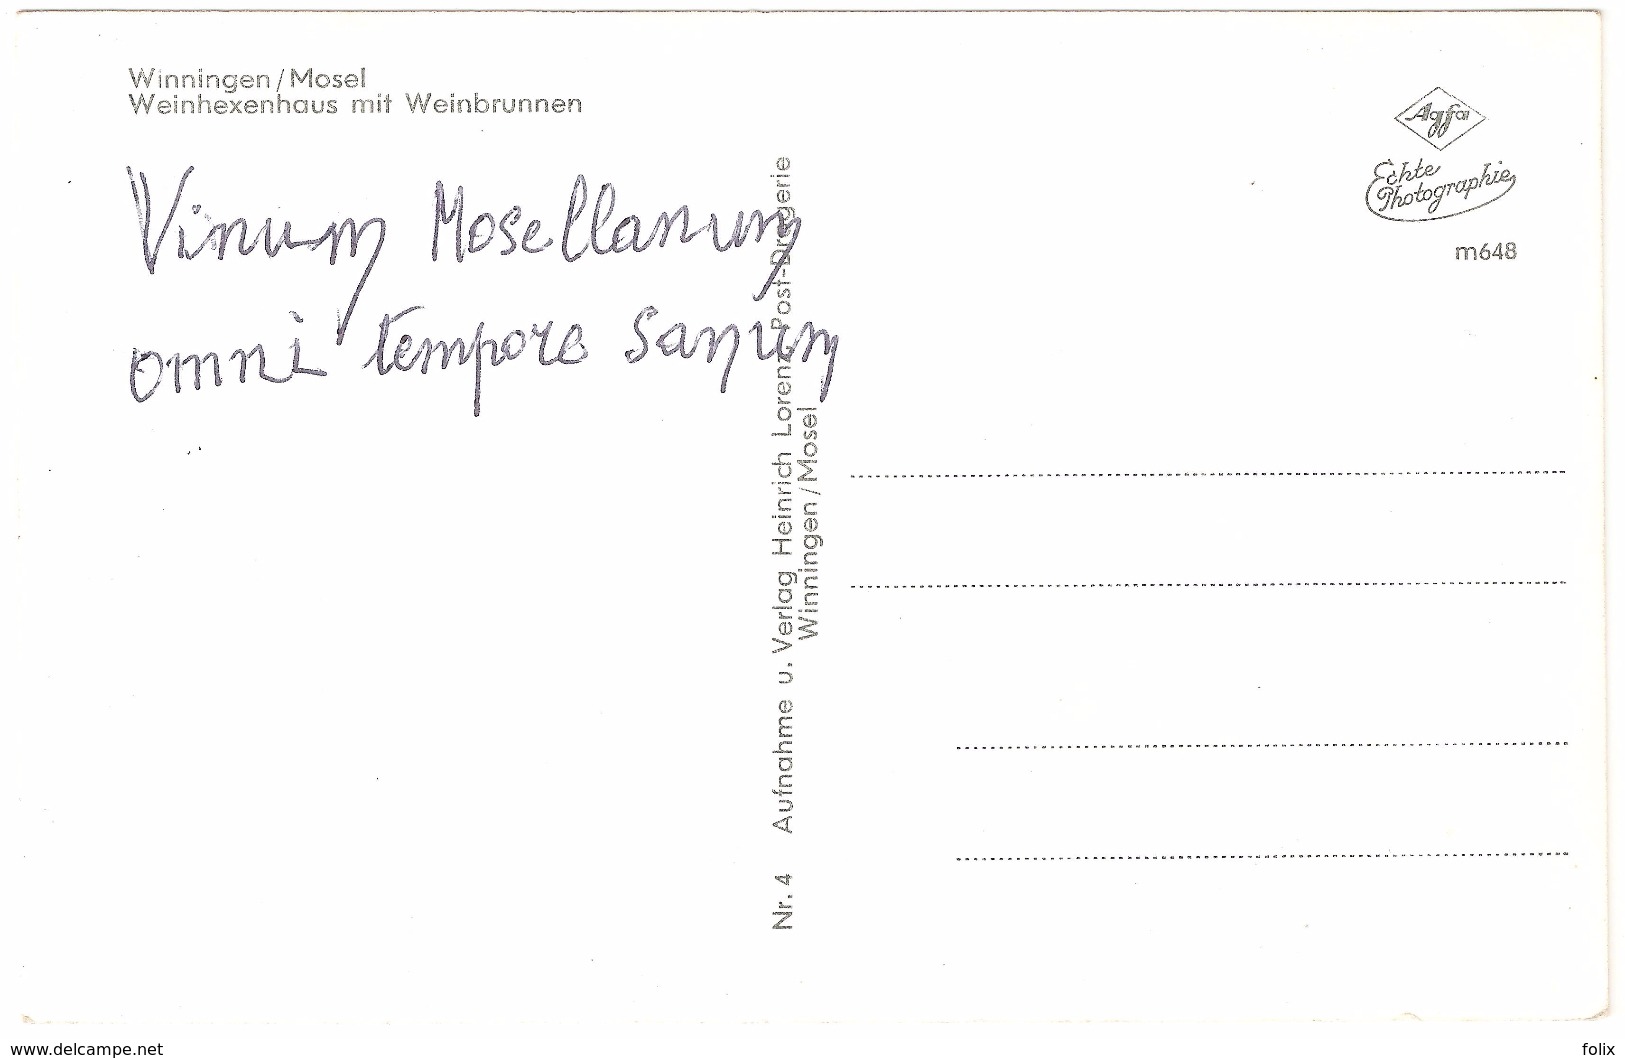 Winningen/Mosel
Weinhexenhaus mit Weinbrunnen
Vinum Mosellanum
omni tempore sanum
Nr. 4 Aufnahme u. Verlag Heinrich Lorenz, Post-Drogerie
Winningen/Mosel
Agfa
Echte
Photographie
m648
www.delcampe.net
folix